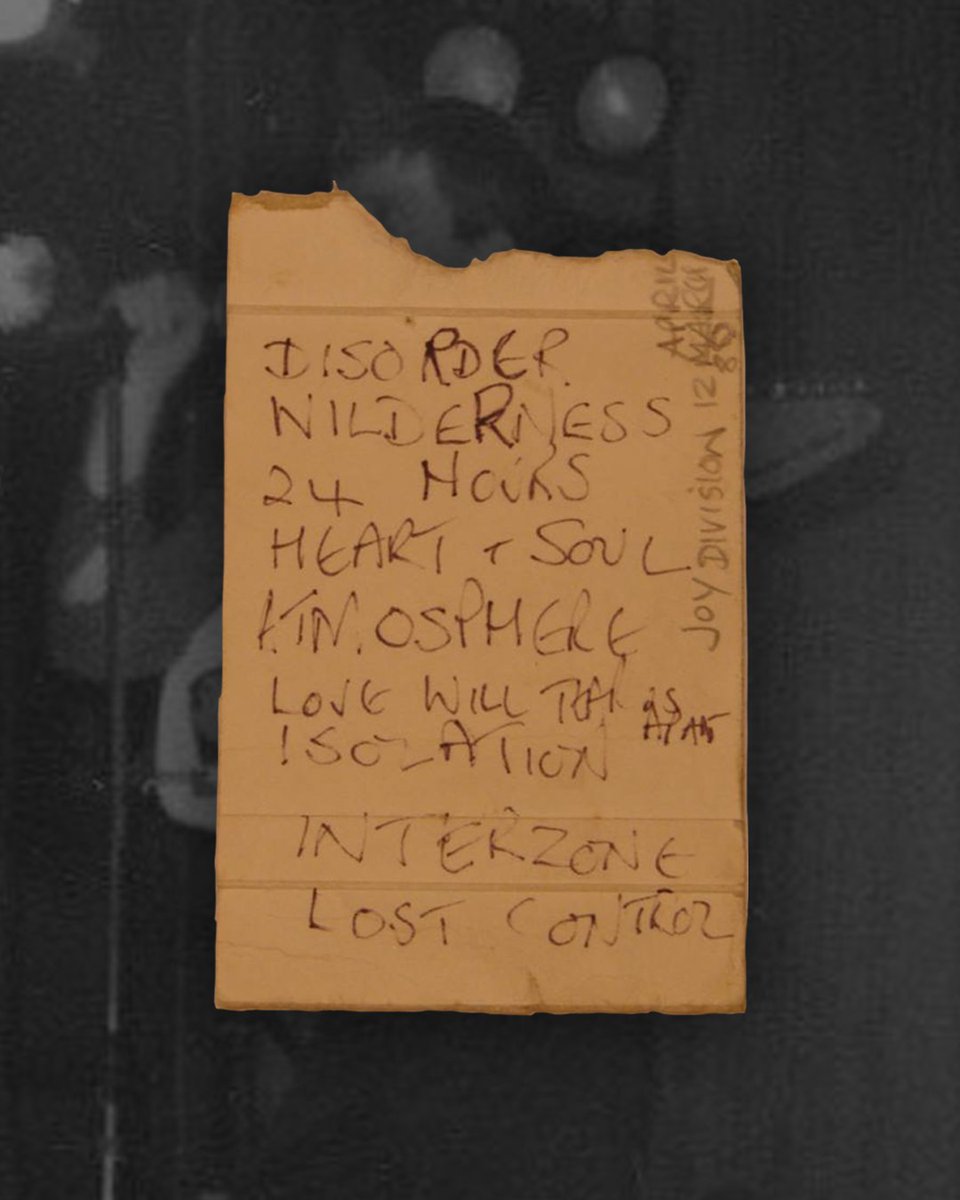 DISORDER
WILDERNESS
24 HOURS
HEART + SOUL
ATMOSPHERE
LOVE WILL TEAR US
APART
ISOLATION
INTERZONE
LOST CONTROL
JOY DIVISION 12 MARCH 80
APRIL